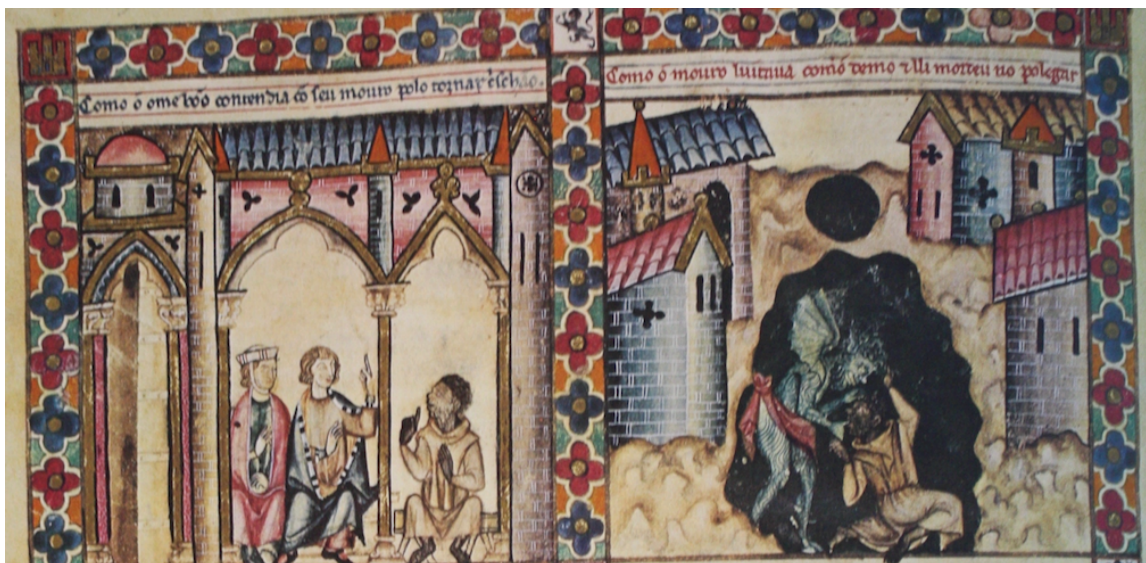 Como o ome bõo contendia cõ seu mouro polo tornar c̃schão.
Como o mouro luitava como demo ⁊ lli meteu no polegar